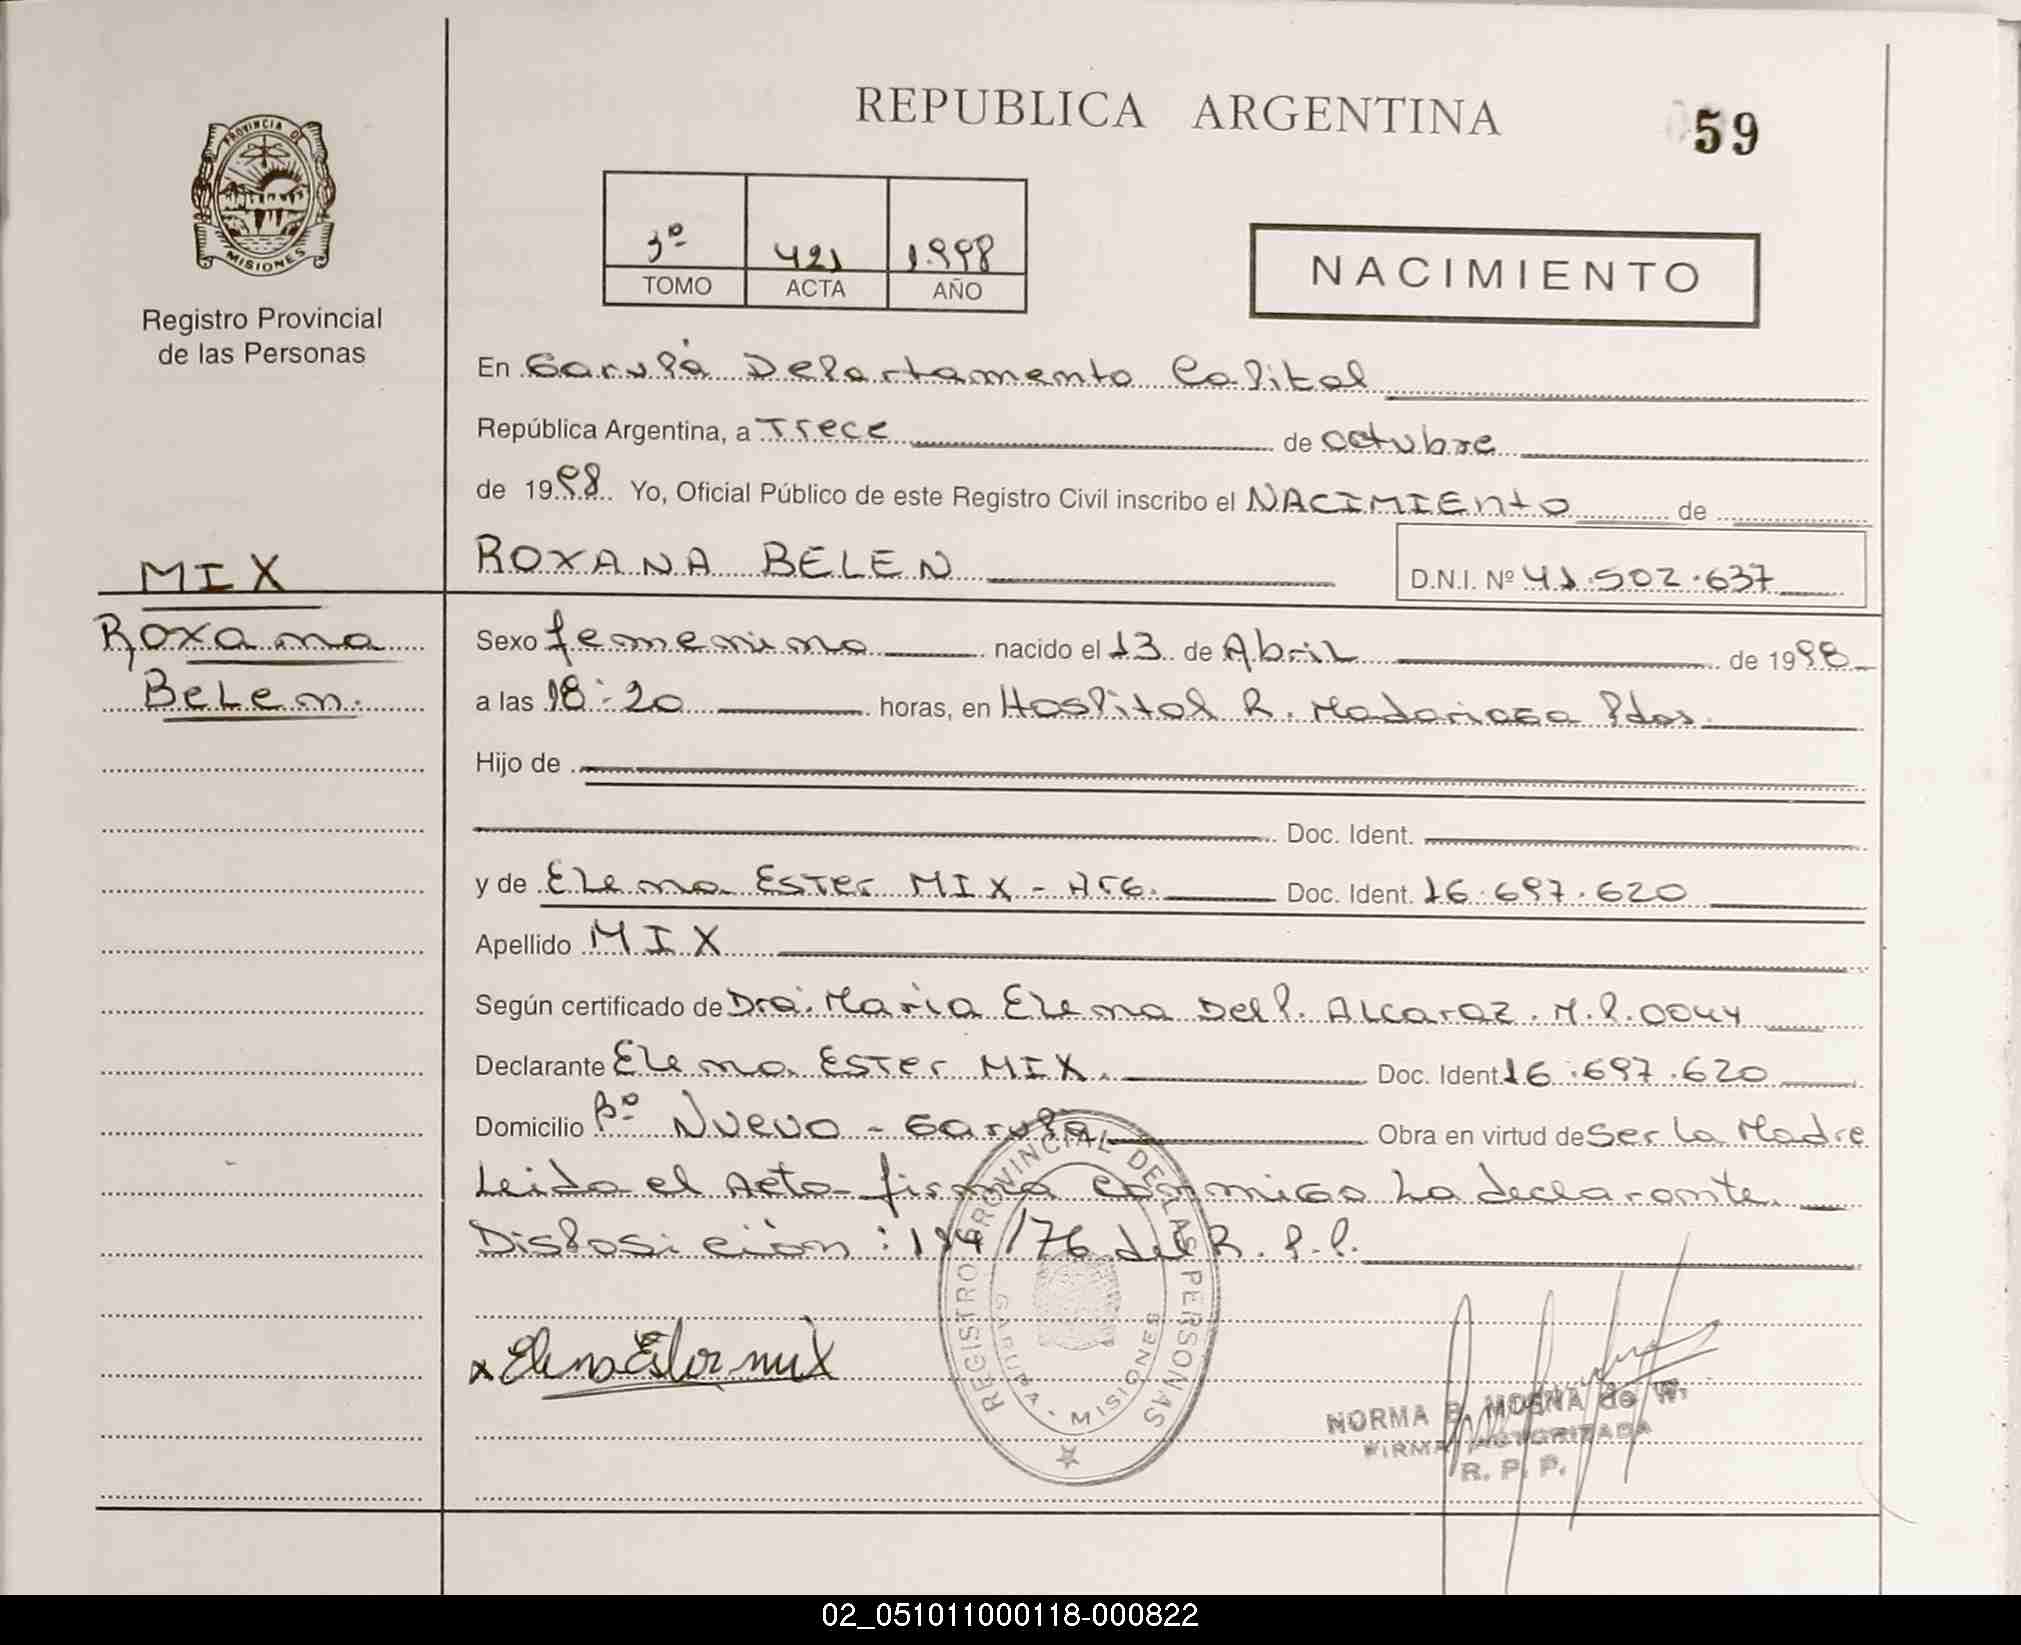 REPUBLICA ARGENTINA
59
PROVINCIA DE
MISIONES
Registro Provincial
de las Personas
3º 421 1.998
TOMO ACTA AÑO
NACIMIENTO
En Garupá Departamento Capital
República Argentina, a Trece de octubre
de 1998 Yo, Oficial Público de este Registro Civil inscribo el NACIMIENTO de
MIX
ROXANA BELEN
D.N.I. Nº 41.502.637
Roxana
Sexo femenino nacido el 13 de Abril de 1998
Belen.
a las 18:20 horas, en Hospital R. Madariaga Pdas.
Hijo de
Doc. Ident.
y de Elena Ester MIX - Arg. Doc. Ident. 16.697.620
Apellido MIX
Según certificado de Dra. Maria Elena Del P. Alcaraz. M.P. 0044
Declarante Elena Ester MIX. Doc. Ident. 16.697.620
Domicilio Bº Nuevo - Garupá Obra en virtud de Ser la Madre
Leida el Acta firma conmigo La declarante.
Disposición: /76 del R.P.P.
x Elena Ester mix
REGISTRO PROVINCIAL DE LAS PERSONAS
GARUPA - MISIONES
NORMA B. MOSNA de W.
FIRMA AUTORIZADA
R. P. P.
02_051011000118-000822